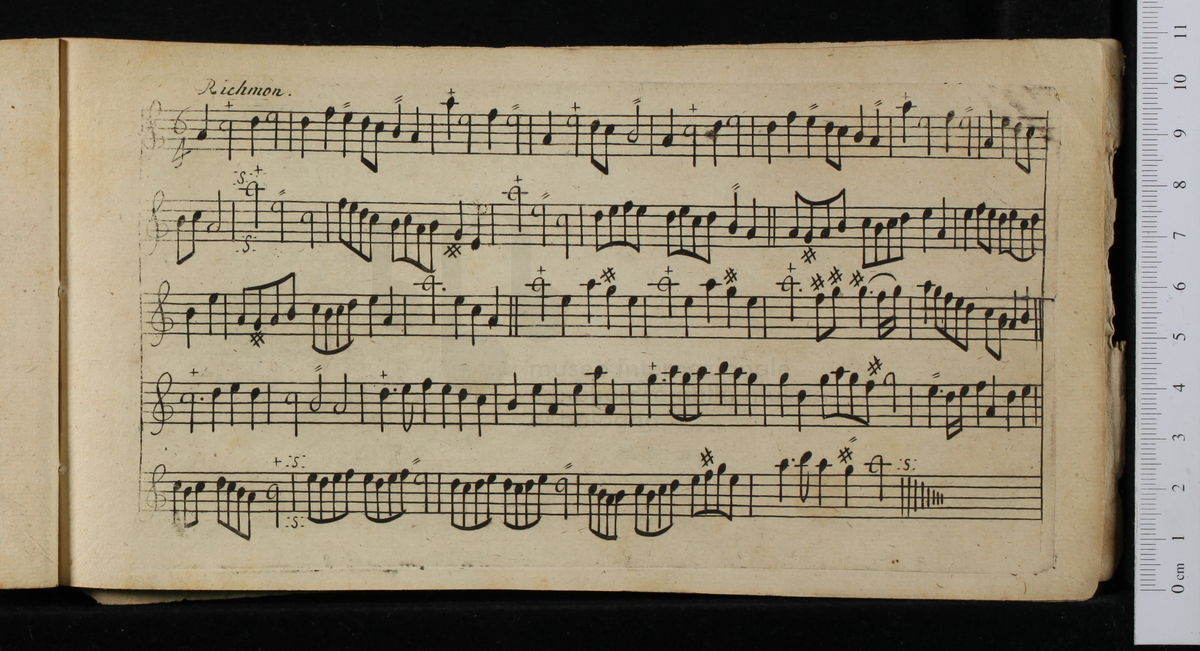 Richmon.
6
4
:S:
:S:
:S:
:S:
:S:
11
10
9
8
7
6
5
4
3
2
1
0 cm